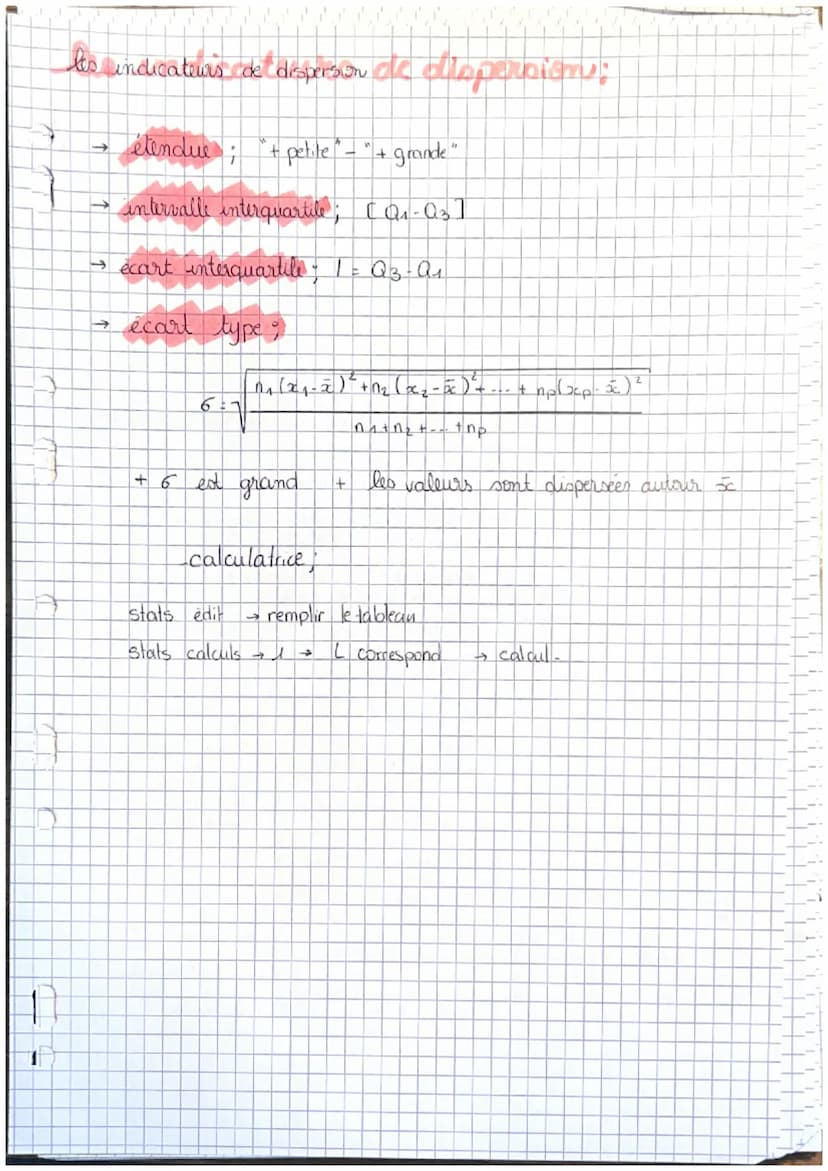 les indicateurs de dispersion de dispersion:
→ étendue ; "+ petite" - "+ grande"
→ intervalle interquartile ; [Q1 - Q3]
→ écart interquartile ; I = Q3 - Q1
→ écart type ;
σ = √((n1(x1 - x̄)² + n2(x2 - x̄)² + ... + np(xp - x̄)²) / (n1 + n2 + ... + np))
+ σ est grand + les valeurs sont dispersées autour x̄
calculatrice ;
stats édit → remplir le tableau
stats calculs → 1 → L correspond → calcul.